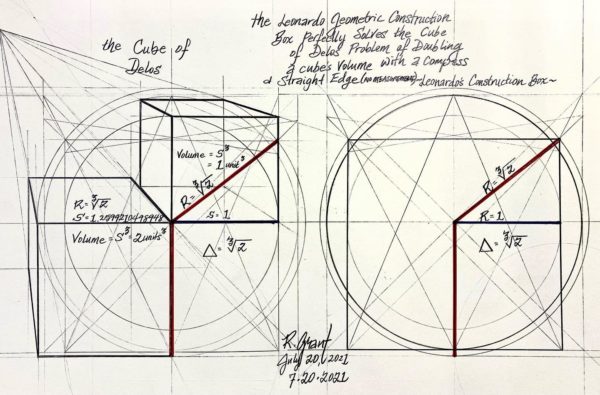 the Cube of
Delos
the Leonardo Geometric Construction
Box Perfectly Solves the Cube
of Delos Problem of Doubling
a cube's Volume with a Compass
& Straight Edge (NO MEASUREMENT) ~Leonardo's Construction Box~
Volume = S³
= 1 unit³
R = ³√2
S = 1
R = ³√2
S = 1.259921049894
Volume = S³ = 2 units³
△ = ³√2
R = ³√2
R = 1
△ = ³√2
R. Grant
July 20, 2021
7·20·2021